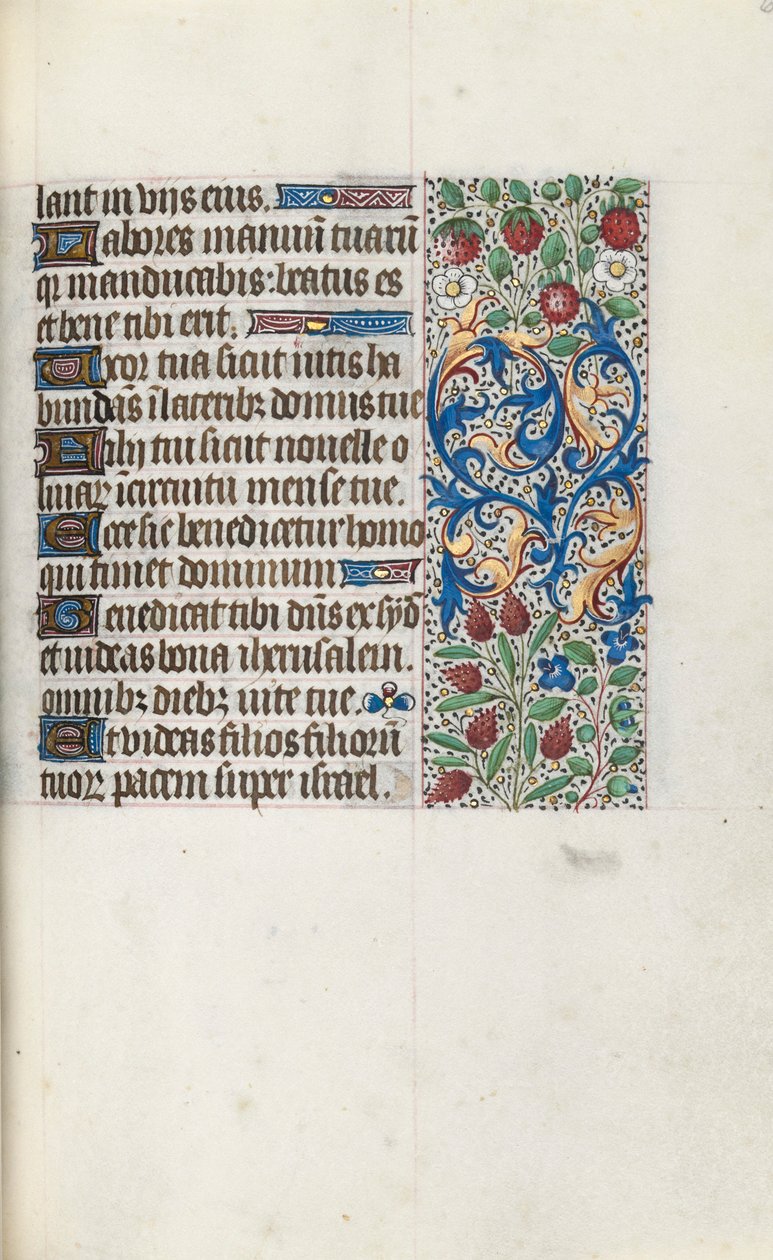 lant in viis eius.
Labores manuū tuarū
qz manducabis: beatus es
et bene tibi erit.
Uxor tua sicut uitis ha
bundās ī laterib⁊ domus tue
Filij tui sicut nouelle o
liuaꝝ ī circuitu mense tue.
Ecce sic benedicetur homo
qui timet dominum
Benedicat tibi dn̄s ex syō
et uideas bona iherusalem.
omnib⁊ dieb⁊ uite tue.
Et videas filios filiorū
tuoꝝ pacem super israel.